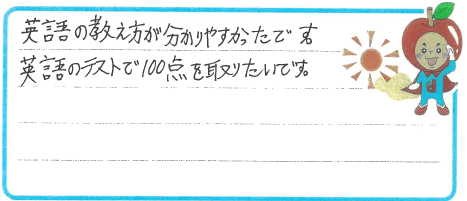 英語の教え方が分かりやすかったです。
英語のテストで100点を取りたいです。